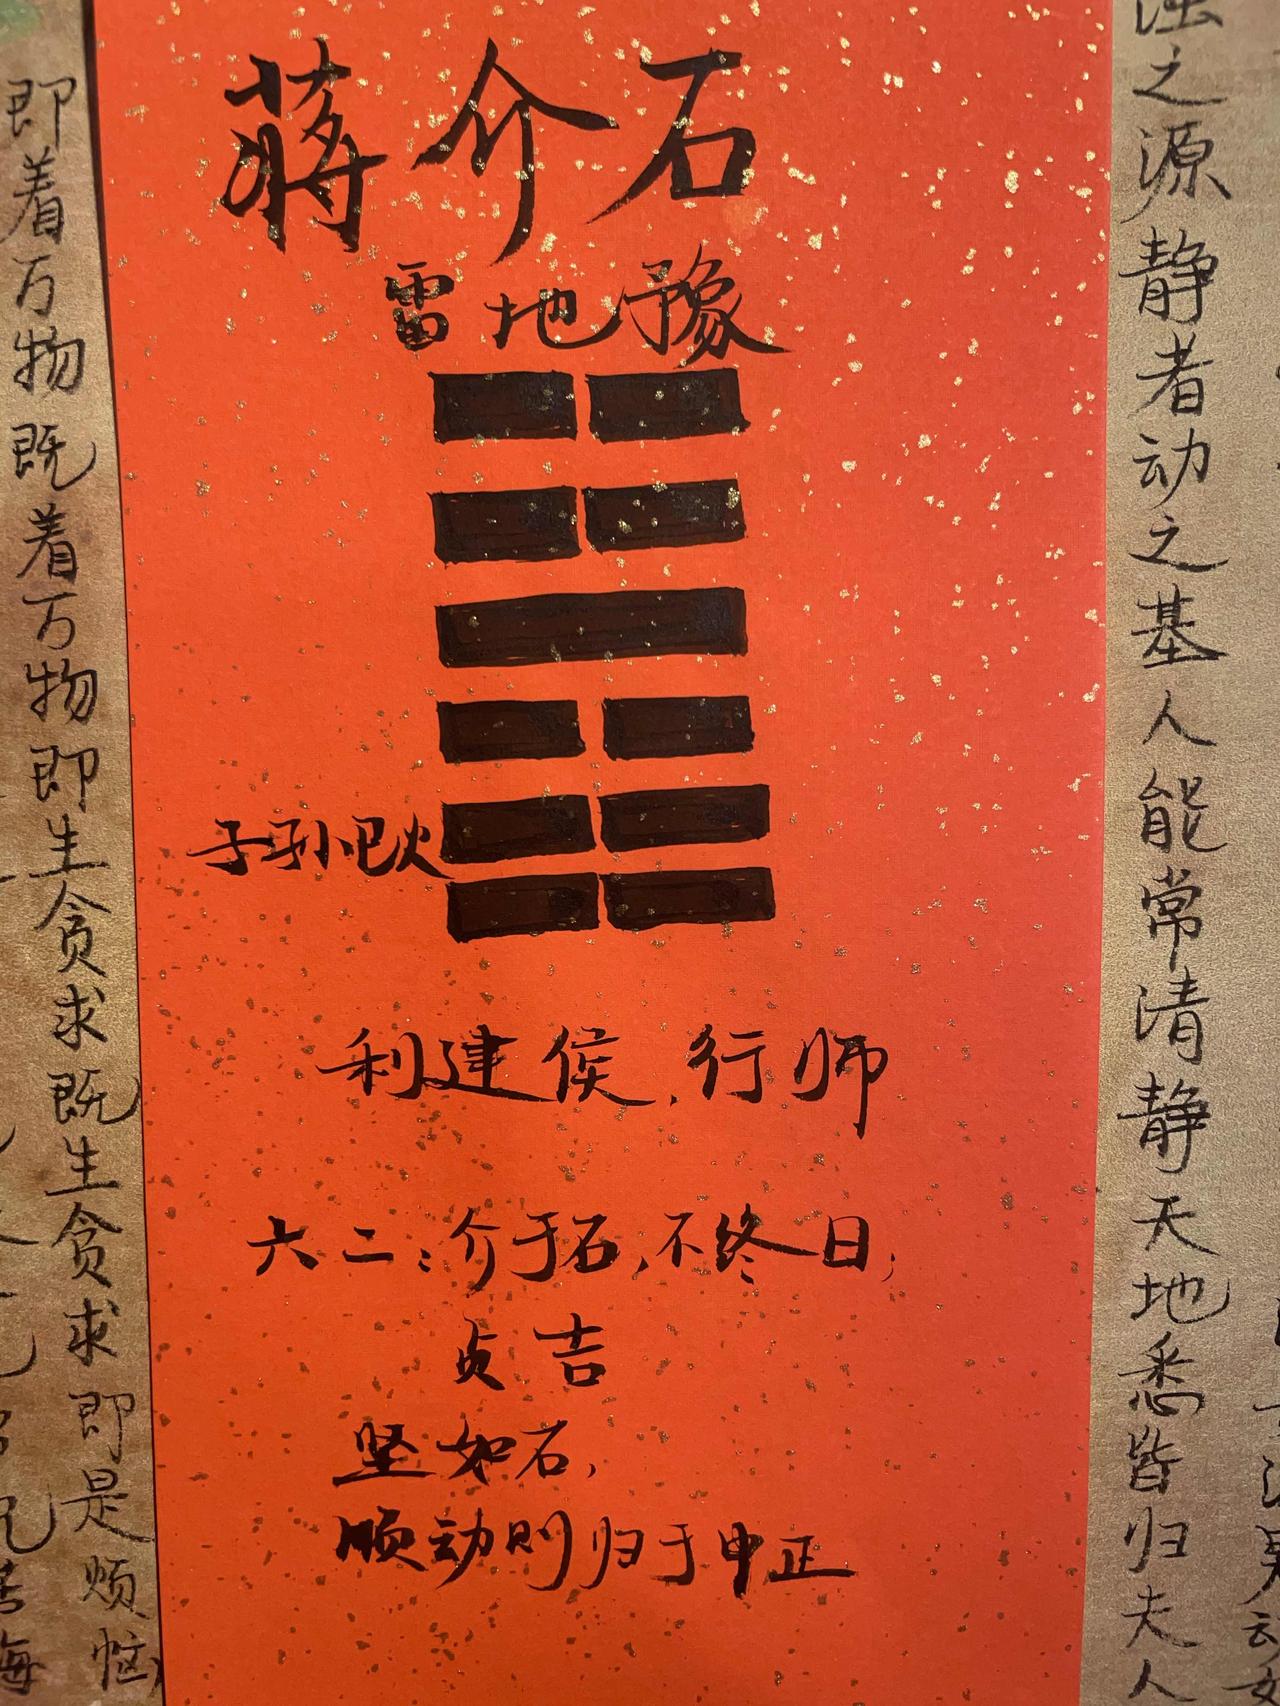 蒋介石
雷地豫
子孙巳火
利建侯,行师
六二:介于石,不终日;
贞吉
坚如石,
顺动则归于中正
之源静者动之基人能常清静天地悉皆归夫人
即着万物既着万物即生贪求既生贪求即是烦恼